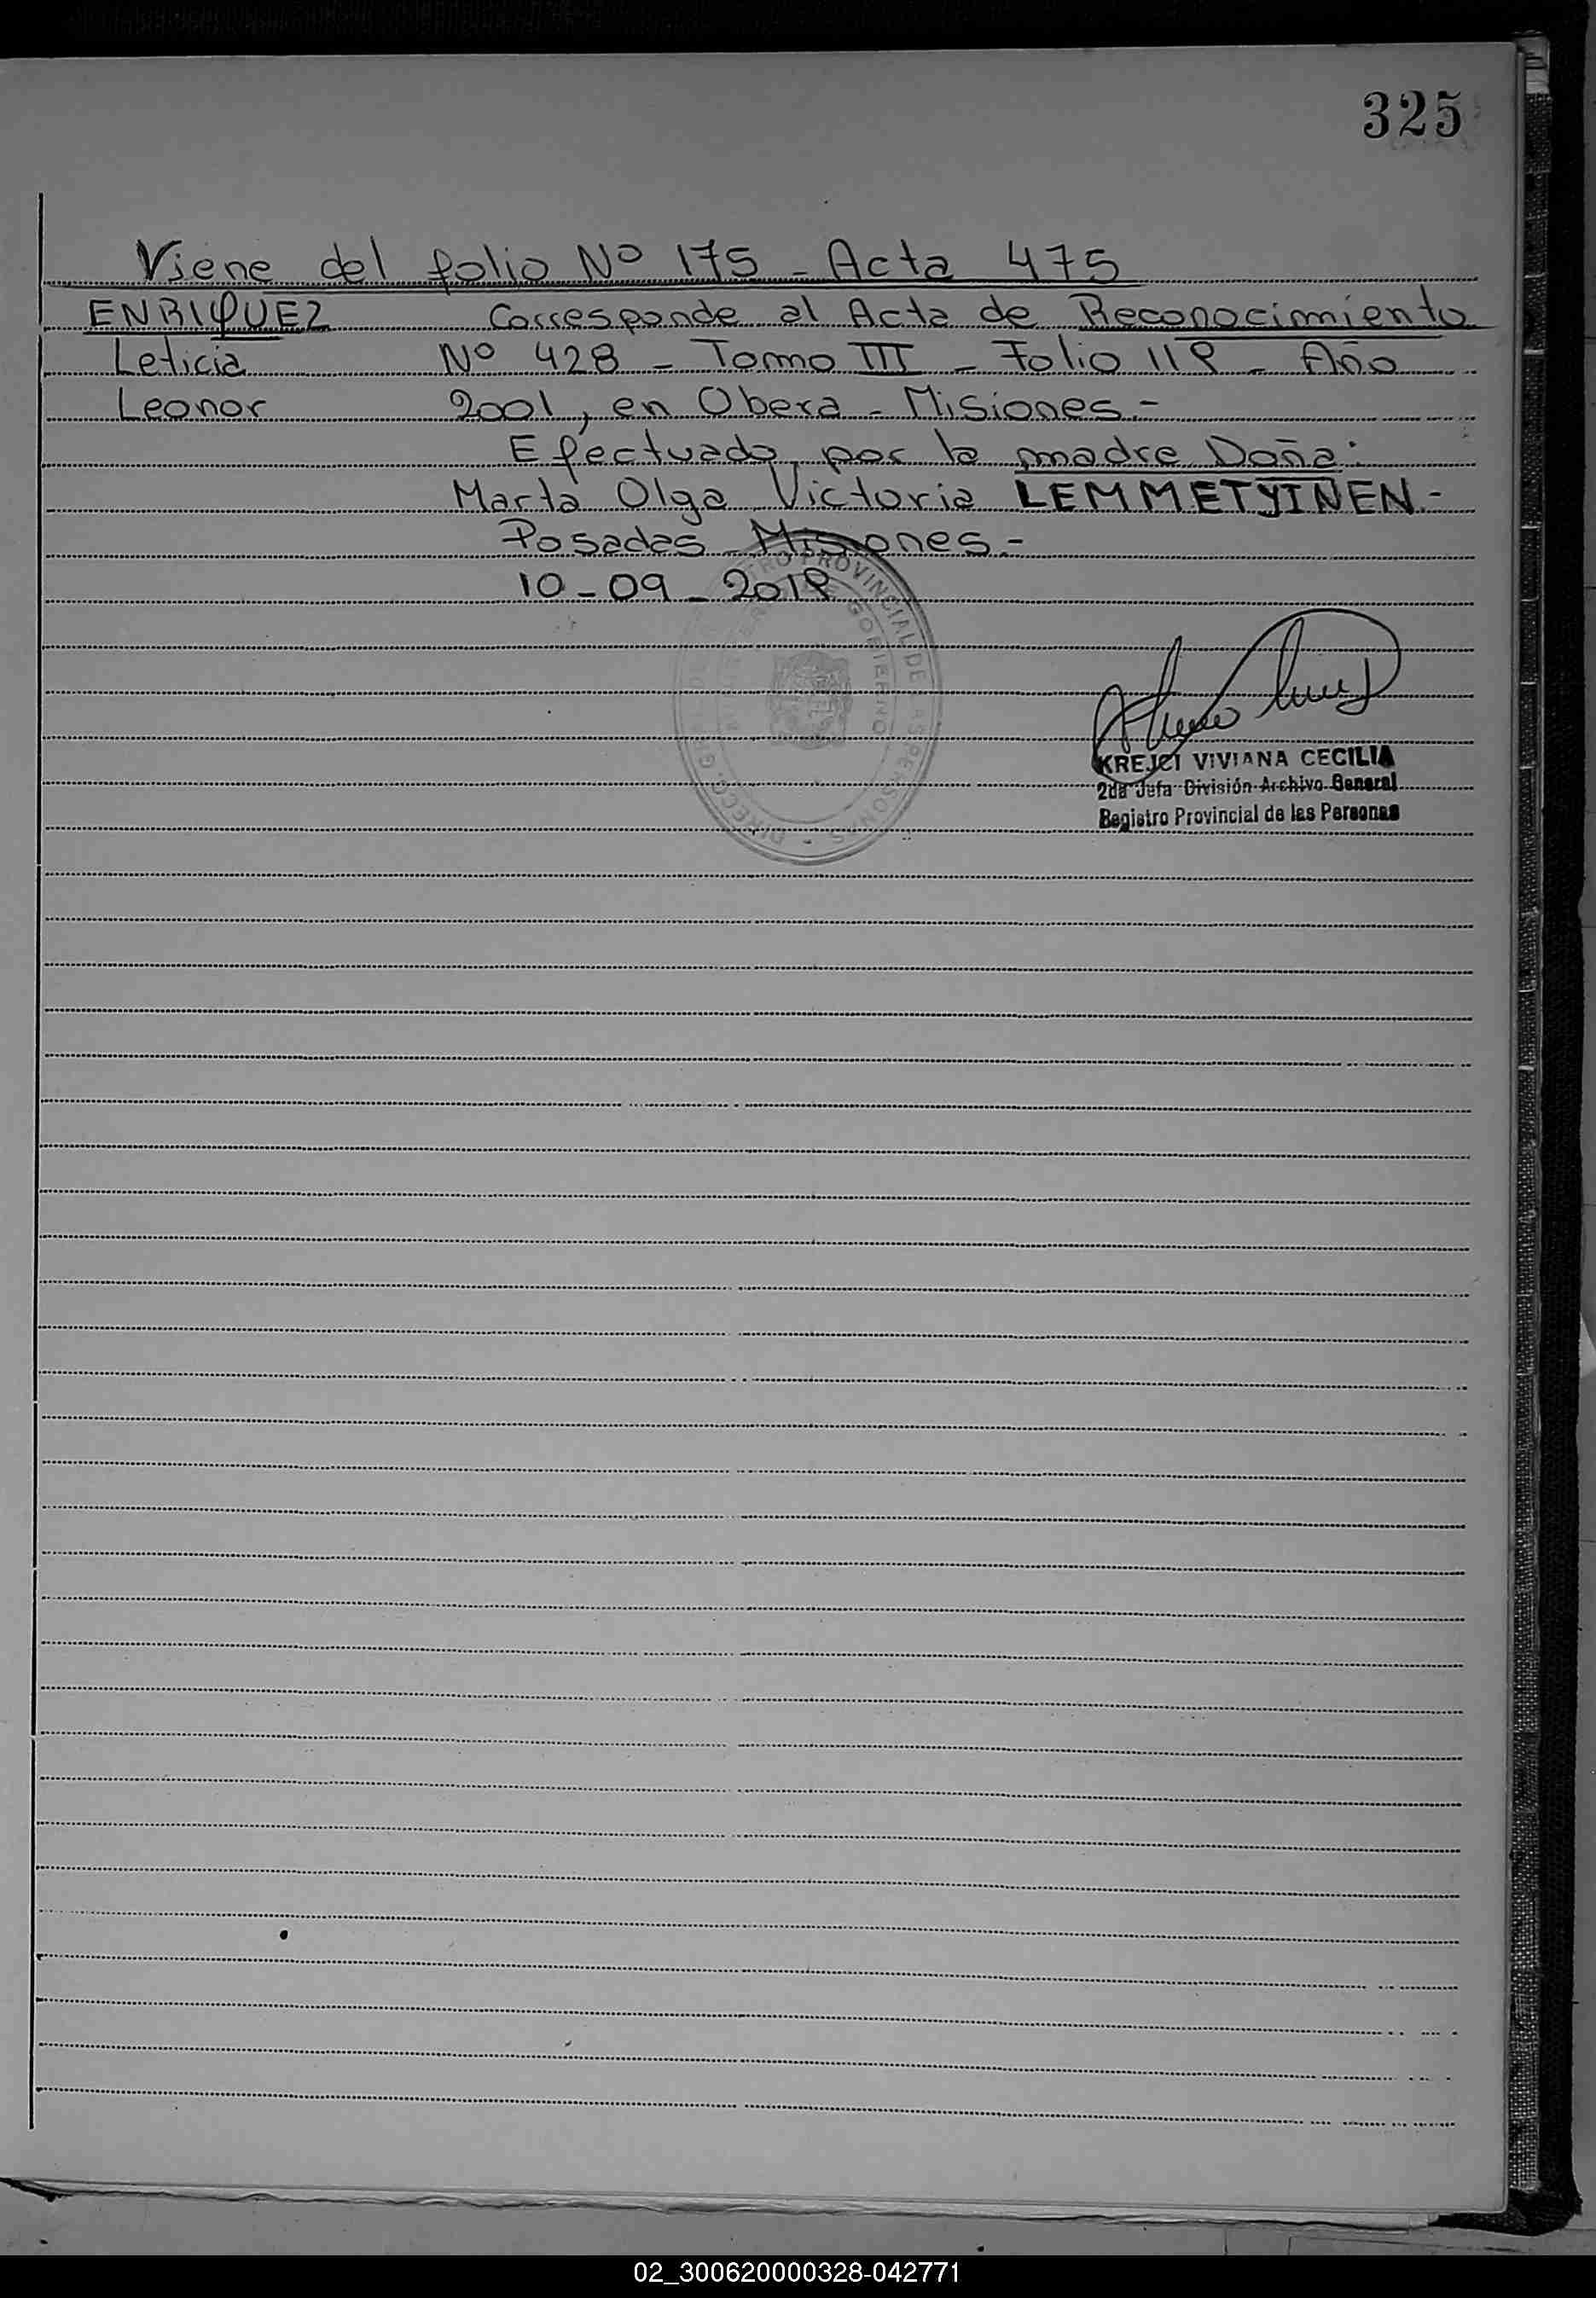 325
Viene del folio Nº 175 - Acta 475
ENRIQUEZ Corresponde al Acta de Reconocimiento
Leticia Nº 428 - Tomo III - Folio 118 - Año
Leonor 2001, en Obera - Misiones.-
Efectuado, por la madre Doña:
Marta Olga Victoria LEMMETYINEN.-
Posadas - Misiones.-
10-09-2018
PROVINCIAL DE LAS PERSONAS
GOBIERNO
KREJCI VIVIANA CECILIA
2da Jefa División Archivo General
Registro Provincial de las Personas
02_300620000328-042771